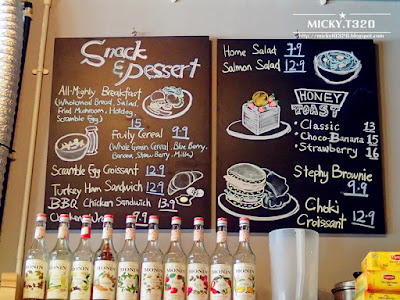 MICKY.T320
Snack
& Dessert
All-Mighty Breakfast
(Wholemeal Bread, Salad,
Fried Mushroom, Hotdog,
Scramble Egg)
15
Fruity Cereal 9.9
(Whole Grain Cereal, Blue Berry,
Banana, Straw Berry, Milk)
Scramble Egg Croissant 12.9
Turkey Ham Sandwich 12.9
B.B.Q Chicken Sandwich 13.9
Chicken
Home Salad 7.9
Salmon Salad 12.9
HONEY
TOAST
• Classic 13
• Choco-Banana 15
• Strawberry 16
Stephy Brownie
9.9
Choki
Croissant 12.9
MONIN
MONIN
MONIN
MONIN
MONIN
MONIN
MONIN
MONIN
MONIN
Lipton